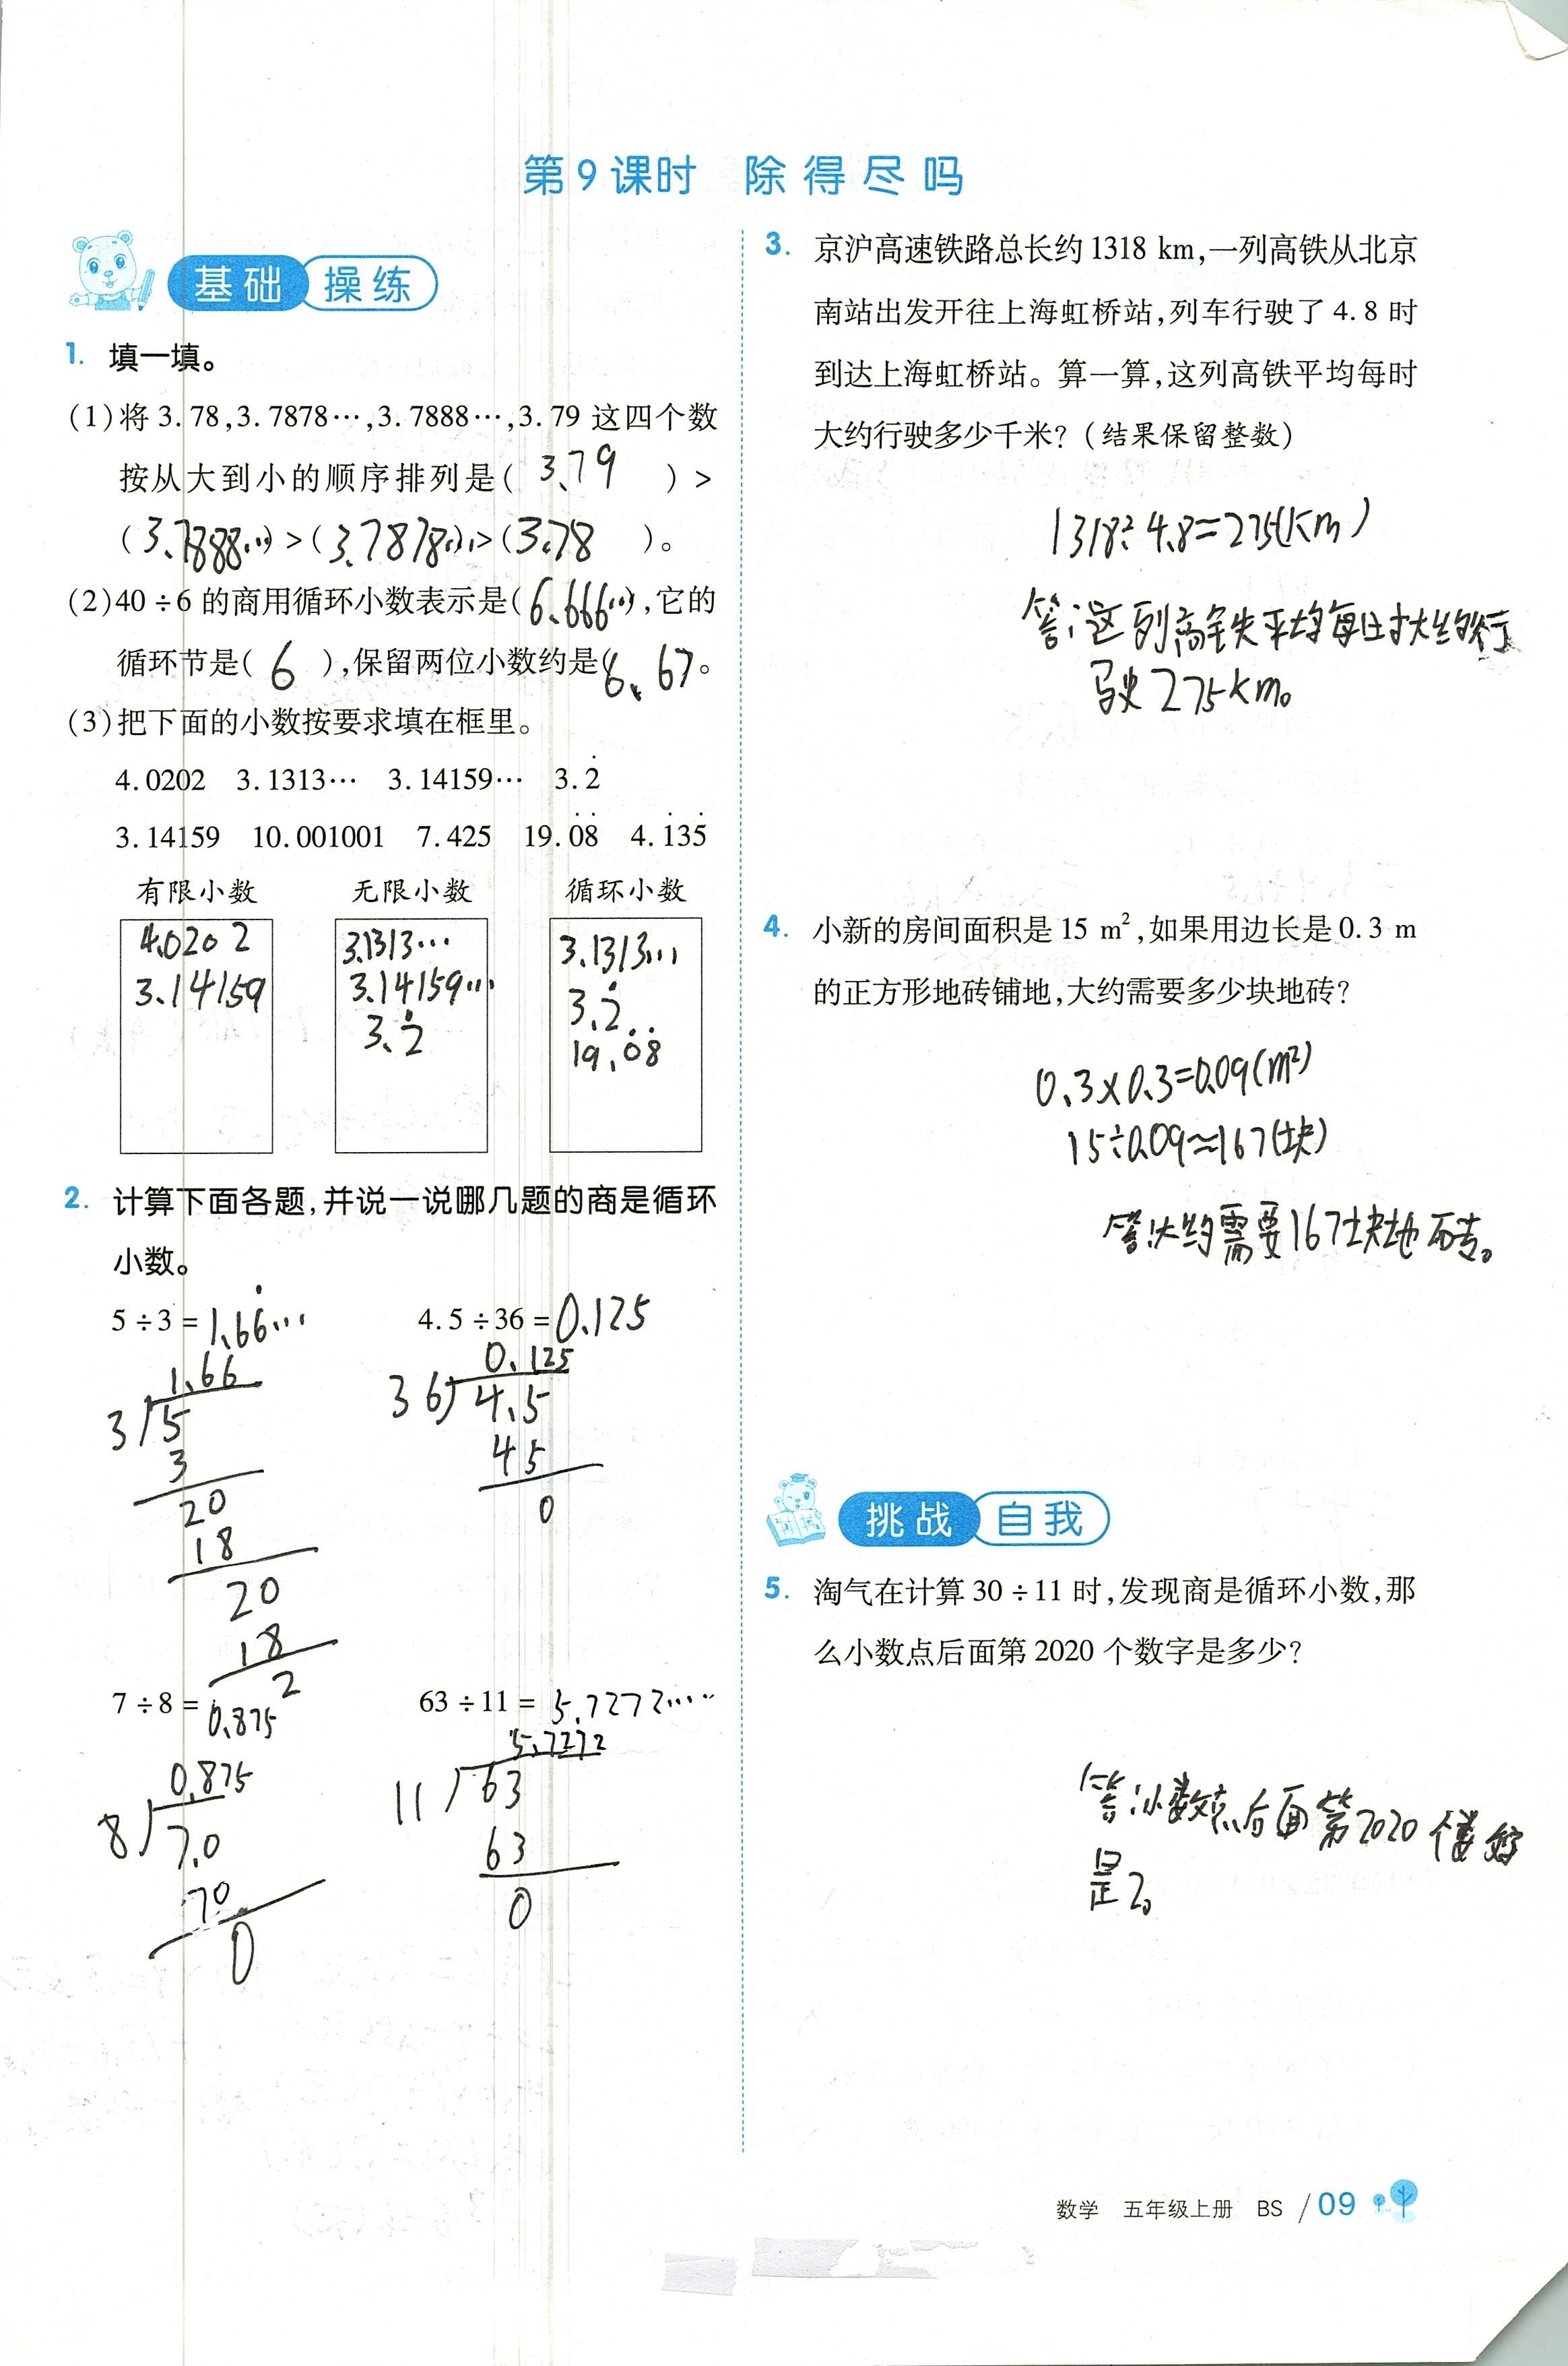 第9课时 除得尽吗
基础 操练
1. 填一填。
(1)将 3.78,3.7878…,3.7888…,3.79 这四个数
按从大到小的顺序排列是( 3.79 ) >
(3.7888…) > (3.7878…) > (3.78 )。
(2)40÷6 的商用循环小数表示是(6.666…),它的
循环节是( 6 ),保留两位小数约是(6.67。
(3)把下面的小数按要求填在框里。
4.0202 3.1313… 3.14159… 3.2̇
3.14159 10.001001 7.425 19.0̇8̇ 4.1̇35̇
有限小数 无限小数 循环小数
4.0202 3.1313… 3.1313…
3.14159 3.14159… 3.2̇
3.2̇ 19.0̇8̇
2. 计算下面各题,并说一说哪几题的商是循环
小数。
5÷3=1.66̇… 4.5÷36=0.125
1.66 0.125
3 5 36 4.5
3 45
20 0
18
20
18
2
7÷8=0.875 63÷11=5.7272……
0.875 5.7272
8 7.0 11 63
70 63
0 0
3. 京沪高速铁路总长约 1318 km,一列高铁从北京
南站出发开往上海虹桥站,列车行驶了 4.8 时
到达上海虹桥站。算一算,这列高铁平均每时
大约行驶多少千米?(结果保留整数)
1318÷4.8=275(km)
答:这列高铁平均每时大约行
驶275km。
4. 小新的房间面积是 15 m²,如果用边长是 0.3 m
的正方形地砖铺地,大约需要多少块地砖?
0.3×0.3=0.09(m²)
15÷0.09≈167(块)
答:大约需要167块地砖。
挑战 自我
5. 淘气在计算 30÷11 时,发现商是循环小数,那
么小数点后面第 2020 个数字是多少?
答:小数点后面第2020个数
是2。
数学 五年级上册 BS / 09